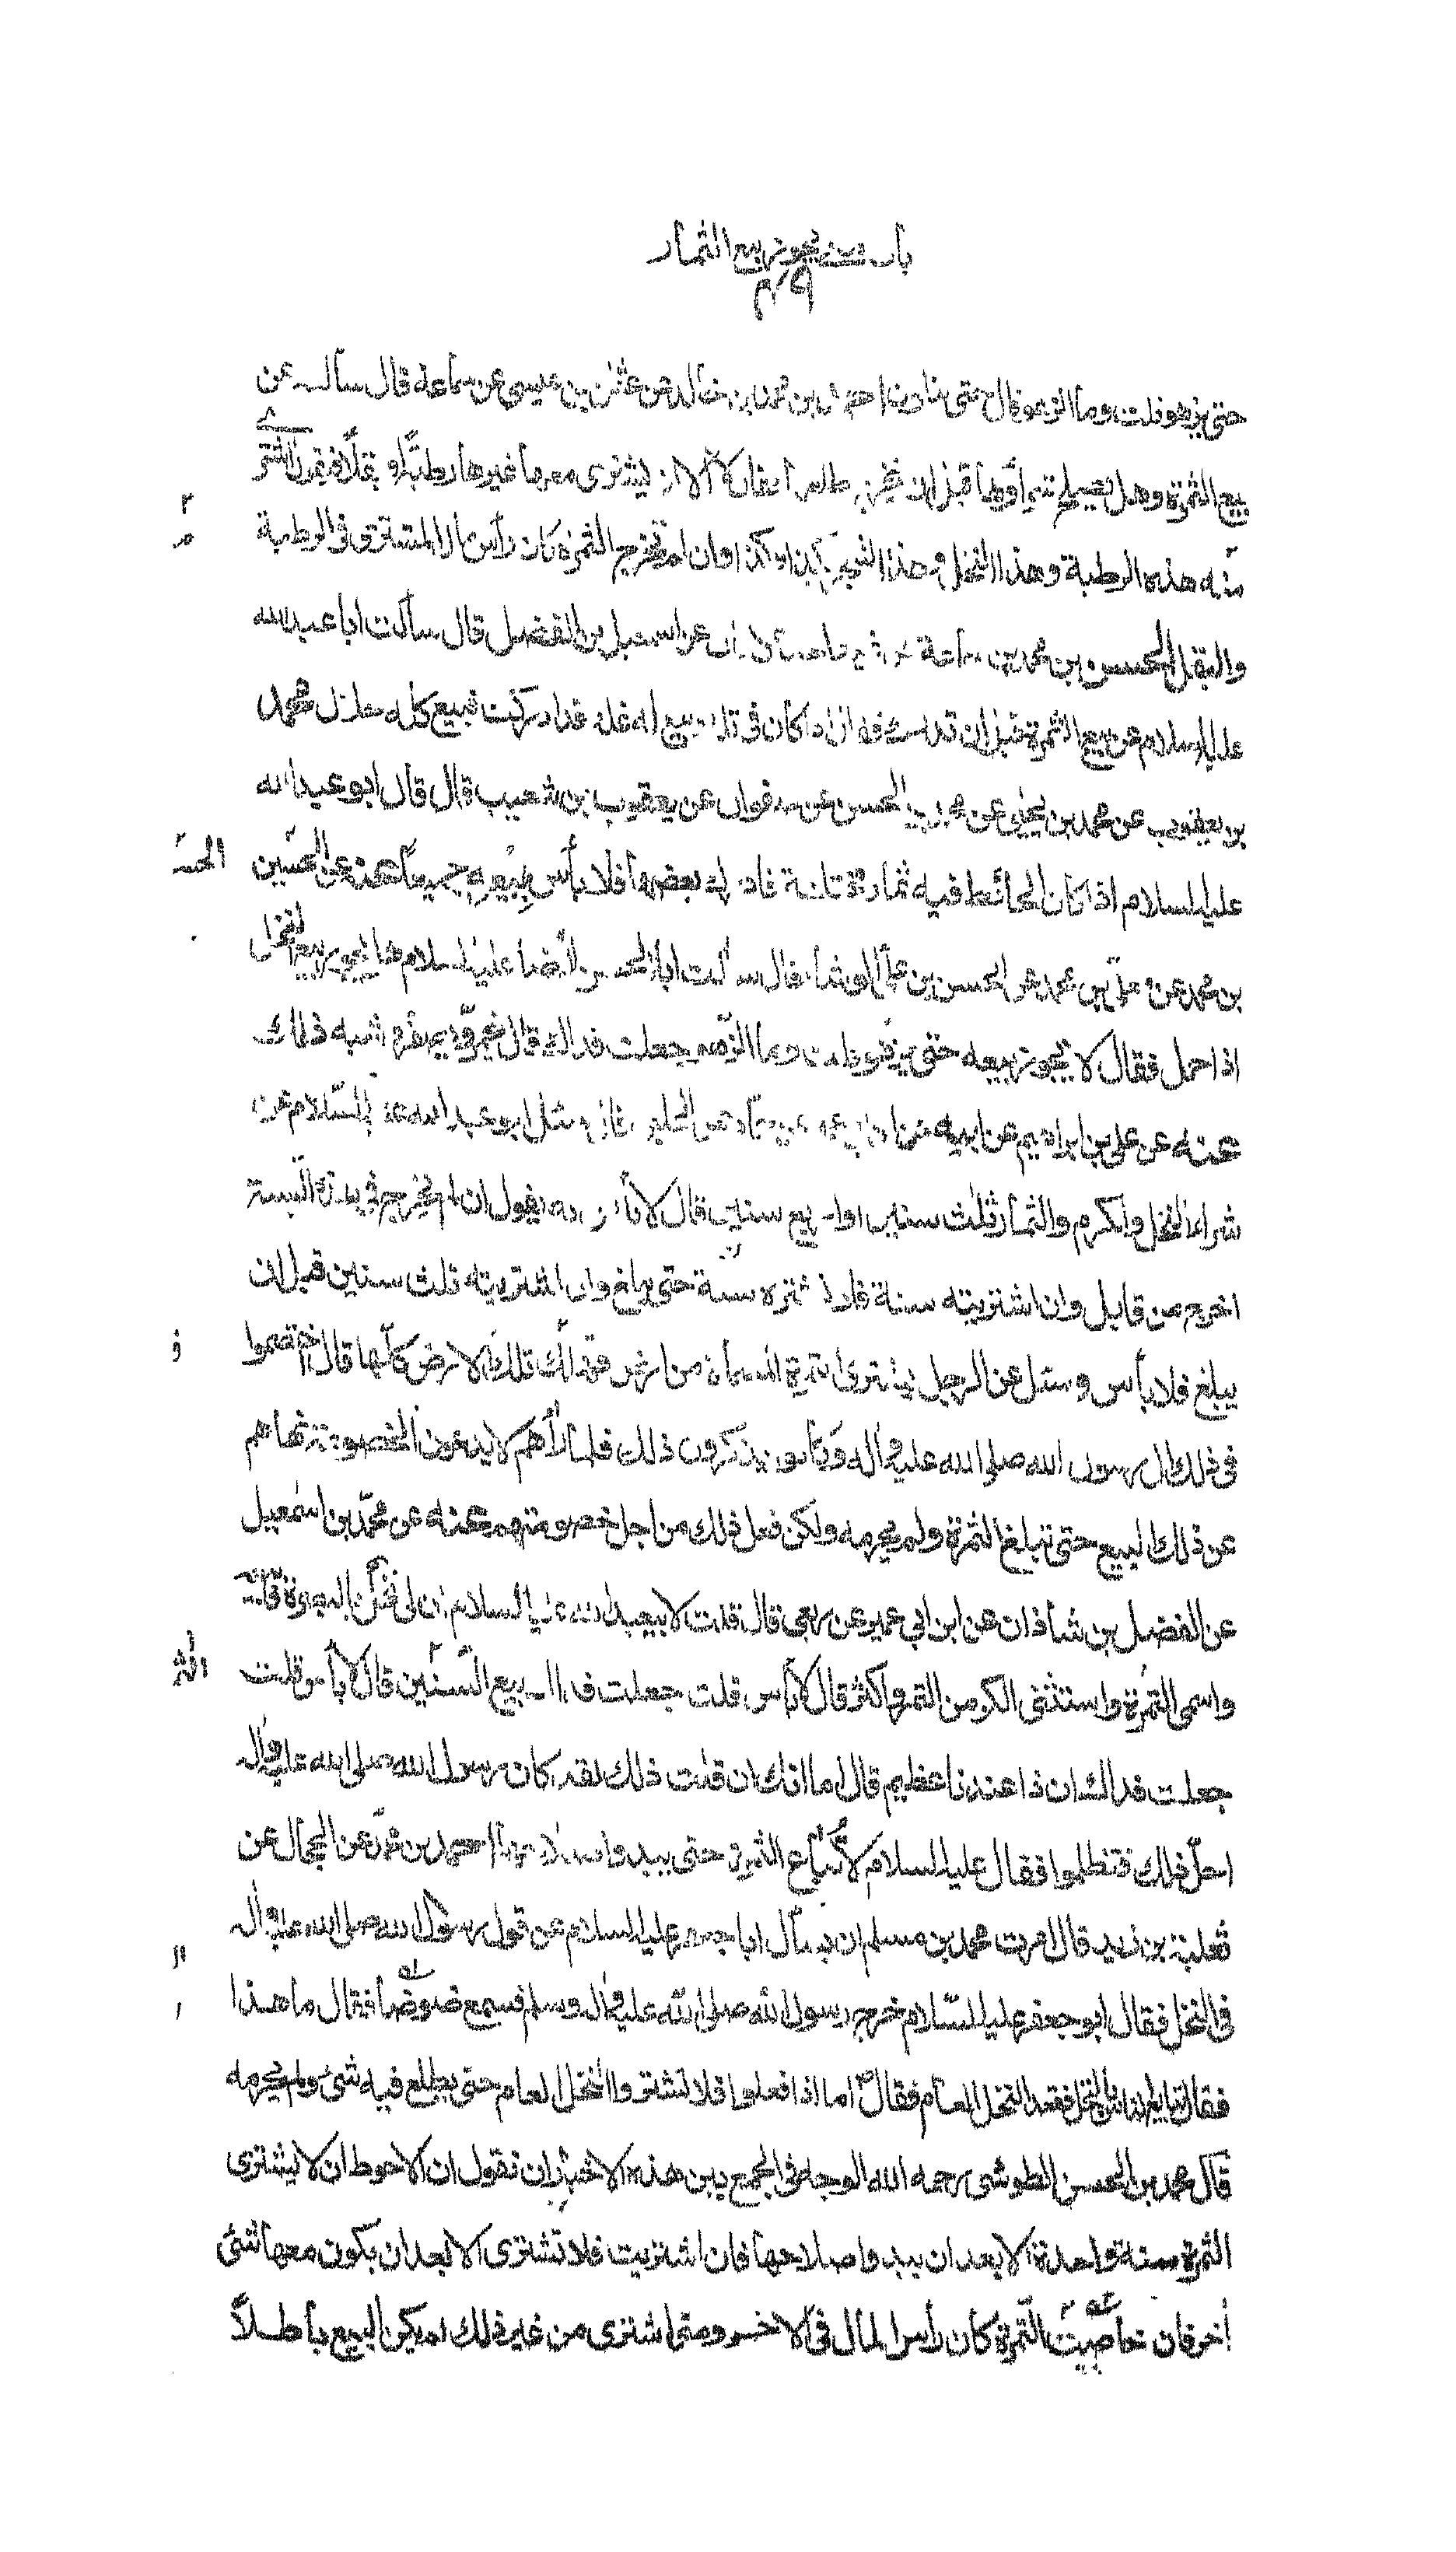 باب متى يجوز بيع الثمار
حتى يزهو قلت وما الزهو قال حتى احمد بن محمد بن خالد عن عثمن بن عيسى عن سماعة قال سألته عن
بيع الثمرة وهل يصلح شراؤها قبل ان يخرج طلعها فقال لا الا ان يشترى معها غيرها رطبة او بقلا فيقول اشترى
منه هذه الرطبة وهذا النخل وهذا الشجر بكذا وكذا وان لم تخرج الثمرة كان رأس مال المشترى فى الرطبة
والبقل الحسن بن محمد بن سماعة عن اسمعيل بن الفضل قال سألت ابا عبد الله
عليه السلام عن بيع الثمرة قبل ان تدرك فقال اذا كان فى تلك بيع له غلة قد ادركت فبيع كله حلال محمد
بن يعقوب عن محمد بن يحيى عن محمد بن الحسن عن صفوان عن يعقوب بن شعيب قال قال ابو عبد الله
عليه السلام اذا كان الحائط فيه ثمار مختلفة فادرك بعضها فلا بأس ببيعه جميعا عنه عن الحسين
الحسـ
بن محمد عن معلى بن محمد عن الحسن بن على الوشاء قال سألت ابا الحسن الرضا عليه السلام هل يجوز بيع النخل
اذا حمل فقال لا يجوز بيعه حتى يزهو قلت وما الزهو جعلت فداك قال يحمر ويصفر وشبه ذلك
عنه عن على بن ابراهيم عن ابيه عن الحلبى قال سئل ابو عبد الله عليه السلام عن
شراء النخل والكرم والثمار ثلث سنين او اربع سنين قال لا بأس به يقول ان لم يخرج فى هذه السنة
اخرج من قابل وان اشتريته سنة فلا تشتره سنة حتى يبلغ وان اشتريته ثلث سنين قبل ان
يبلغ فلا بأس وسئل عن الرجل يشترى الثمرة المسماة من ارض فتهلك تلك الارض كلها قال اختصموا
فى ذلك الى رسول الله صلى الله عليه وآله وكانوا يذكرون ذلك فلما رآهم لا يدعون الخصومة نهاهم
عن ذلك البيع حتى تبلغ الثمرة ولم يحرمه ولكن فعل ذلك من اجل خصومتهم عنه عن محمد بن اسمعيل
عن الفضل بن شاذان عن ابن ابى عمير عن ربعى قال قلت لابيعبد الله عليه السلام ان لى نخلا بالبصرة فابيعه
واسمى الثمرة واستثنى الكر من التمر واكثر قال لا بأس قلت جعلت فداك بيع السنتين قال لا بأس قلت
جعلت فداك ان ذا عندنا عظيم قال اما انك ان قلت ذلك لقد كان رسول الله صلى الله عليه وآله
احل ذلك فتظلموا فقال عليه السلام لا تباع الثمرة حتى يبدو صلاحها احمد بن محمد عن الحجال عن
ثعلبة بن زيد قال امرت محمد بن مسلم ان يسأل ابا جعفر عليه السلام عن قول رسول الله صلى الله عليه وآله
فى النخل فقال ابو جعفر عليه السلام خرج رسول الله صلى الله عليه وآله وسلم فسمع ضوضاء فقال ما هذا
فقال تبايع الناس النخل فقعد النخل العام فقال ص اما اذا فعلوا فلا تشتروا النخل العام حتى يطلع فيه شئ ولم يحرمه
قال محمد بن الحسن الطوسى رحمه الله الوجه فى الجمع بين هذه الاخبار ان نقول ان الاحوط ان لا يشترى
الثمرة سنة واحدة الا بعد ان يبدو صلاحها فان اشتريت فلا تشترى الا بعد ان يكون معها شئ
آخر فان خاست الثمرة كان رأس المال فى الاخر ومتى اشترى من غير ذلك لم يكن البيع باطلا